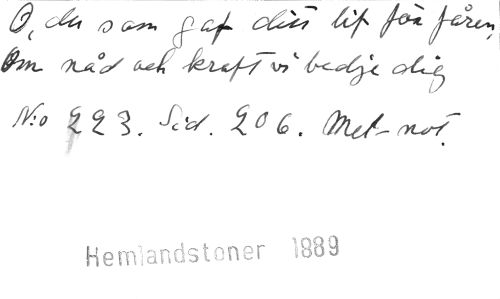 O, du som gaf ditt lif för fåren,
Om nåd och kraft vi bedje dig
N:o 223. Sid. 206. Mel-not.
Hemlandstoner 1889